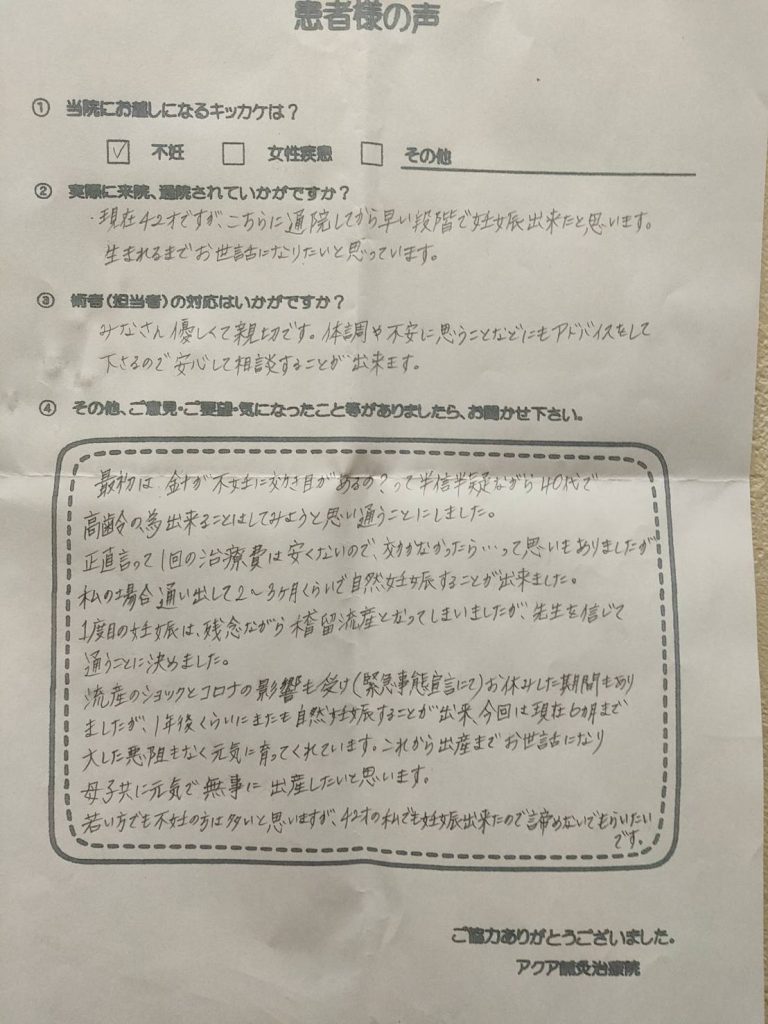 患者様の声
① 当院にお越しになるキッカケは？
☑ 不妊 □ 女性疾患 □ その他
② 実際に来院、通院されていかがですか？
・現在42才ですが、こちらに通院してから早い段階で妊娠出来たと思います。
生まれるまでお世話になりたいと思っています。
③ 術者(担当者)の対応はいかがですか？
みなさん優しくて親切です。体調や不安に思うことなどにもアドバイスをして
下さるので安心して相談することが出来ます。
④ その他、ご意見・ご要望・気になったこと等がありましたら、お聞かせ下さい。
最初は、針が不妊に効き目があるの？って半信半疑ながら40代で
高齢の為出来ることはしてみようと思い通うことにしました。
正直言って1回の治療費は安くないので、効かなかったら…って思いもありましたが
私の場合通い出して2～3ヶ月くらいで自然妊娠することが出来ました。
1度目の妊娠は、残念ながら稽留流産となってしまいましたが、先生を信じて
通うことに決めました。
流産のショックとコロナの影響も受け(緊急事態宣言にて)お休みした期間もあり
ましたが、1年後くらいにまたも自然妊娠することが出来、今回は現在6ヵ月まで
大した悪阻もなく元気に育ってくれています。これから出産までお世話になり
母子共に元気で無事に出産したいと思います。
若い方でも不妊の方は多いと思いますが、42才の私でも妊娠出来たので諦めないでもらいたい
です。
ご協力ありがとうございました。
アクア鍼灸治療院